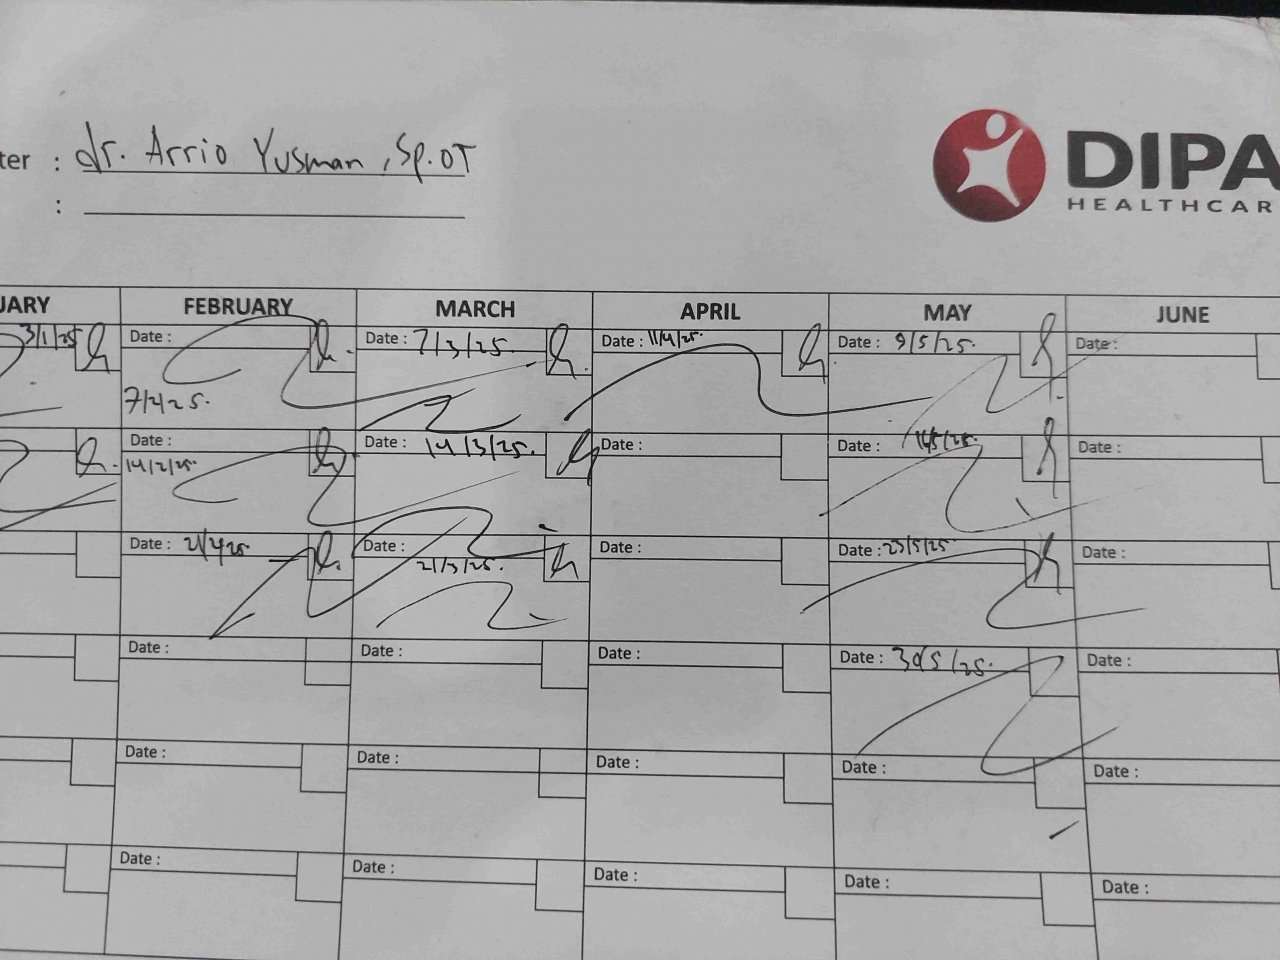 ter : dr. Arrio Yusman, Sp.OT
:
DIPA
HEALTHCAR
UARY FEBRUARY MARCH APRIL MAY JUNE
3/1/25 Date : Date : 7/3/25. Date : 11/4/25. Date : 9/5/25. Date :
7/2/25.
Date : Date : 14/3/25. Date : Date : 16/5/25. Date :
14/2/25.
Date : 21/2/25. Date : Date : Date : 23/5/25. Date :
21/3/25.
Date : Date : Date : Date : 30/5/25. Date :
Date : Date : Date : Date : Date :
Date : Date : Date : Date : Date :